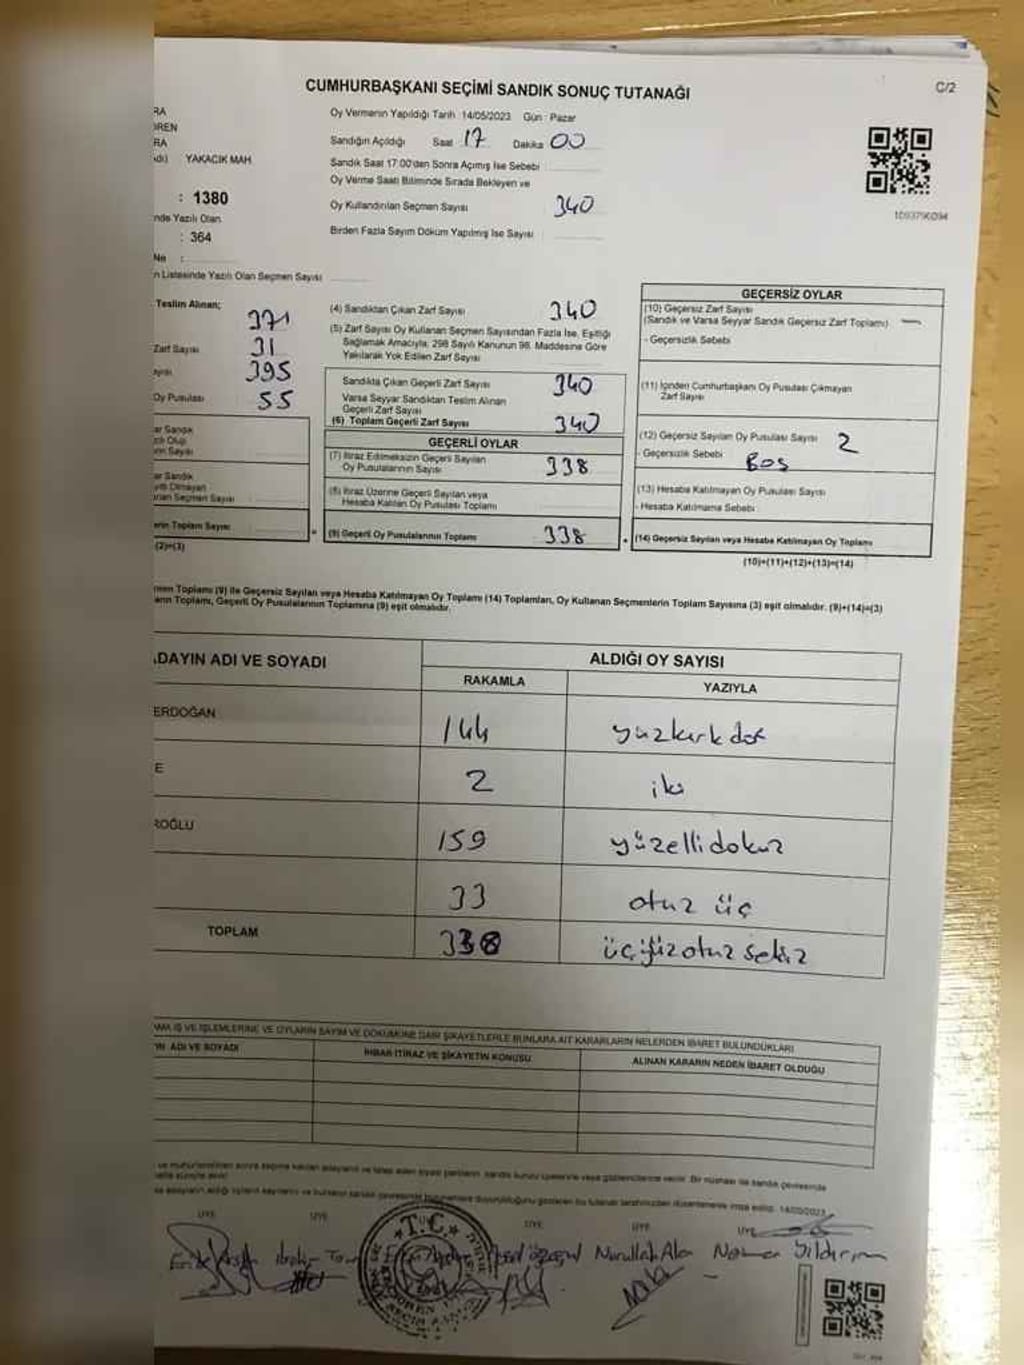 C/2
CUMHURBAŞKANI SEÇİMİ SANDIK SONUÇ TUTANAĞI
RA
Oy Vermenin Yapıldığı Tarih : 14/05/2023 Gün : Pazar
ÖREN
RA
Sandığın Açıldığı Saat 17 Dakika 00
YAKACIK MAH.
Sandık Saat 17:00'den Sonra Açılmış İse Sebebi
Oy Verme Saati Bitiminde Sırada Bekleyen ve
: 1380
Oy Kullandırılan Seçmen Sayısı 340
nde Yazılı Olan
: 364
Birden Fazla Sayım Döküm Yapılmış İse Sayısı
No :
n Listesinde Yazılı Olan Seçmen Sayısı
Teslim Alınan;
371
Zarf Sayısı 31
ayısı 395
Oy Pusulası 55
ar Sandık
zılı Olup
en Sayısı
ar Sandık
zılı Olmayan
anan Seçmen Sayısı
erin Toplam Sayısı
(2)=(3)
(4) Sandıktan Çıkan Zarf Sayısı 340
(5) Zarf Sayısı Oy Kullanan Seçmen Sayısından Fazla İse, Eşitliği
Sağlamak Amacıyla, 298 Sayılı Kanunun 98. Maddesine Göre
Yakılarak Yok Edilen Zarf Sayısı
Sandıkta Çıkan Geçerli Zarf Sayısı 340
Varsa Seyyar Sandıktan Teslim Alınan
Geçerli Zarf Sayısı
(6) Toplam Geçerli Zarf Sayısı 340
GEÇERLİ OYLAR
(7) İtiraz Edilmeksizin Geçerli Sayılan
Oy Pusulalarının Sayısı 338
(8) İtiraz Üzerine Geçerli Sayılan veya
Hesaba Katılan Oy Pusulası Toplamı
(9) Geçerli Oy Pusulalarının Toplamı 338
GEÇERSİZ OYLAR
(10) Geçersiz Zarf Sayısı
(Sandık ve Varsa Seyyar Sandık Geçersiz Zarf Toplamı) —
- Geçersizlik Sebebi
(11) İçinden Cumhurbaşkanı Oy Pusulası Çıkmayan
Zarf Sayısı
(12) Geçersiz Sayılan Oy Pusulası Sayısı 2
- Geçersizlik Sebebi Boş
(13) Hesaba Katılmayan Oy Pusulası Sayısı
- Hesaba Katılmama Sebebi
(14) Geçersiz Sayılan veya Hesaba Katılmayan Oy Toplamı
(10)+(11)+(12)+(13)=(14)
men Toplamı (9) ile Geçersiz Sayılan veya Hesaba Katılmayan Oy Toplamı (14) Toplamları, Oy Kullanan Seçmenlerin Toplam Sayısına (3) eşit olmalıdır. (9)+(14)=(3)
arın Toplamı, Geçerli Oy Pusulalarının Toplamına (9) eşit olmalıdır.
ADAYIN ADI VE SOYADI
ALDIĞI OY SAYISI
RAKAMLA YAZIYLA
ERDOĞAN 144 yüzkırkdört
E 2 iki
ROĞLU 159 yüzellidokuz
33 otuz üç
TOPLAM 338 üçyüzotuz sekiz
AMA İŞ VE İŞLEMLERİNE VE OYLARIN SAYIM VE DÖKÜMÜNE DAİR ŞİKAYETLERLE BUNLARA AİT KARARLARIN NELERDEN İBARET BULUNDUKLARI
ADI VE SOYADI
İHBAR İTİRAZ VE ŞİKAYETİN KONUSU
ALINAN KARARIN NEDEN İBARET OLDUĞU
ÜYE ÜYE ÜYE ÜYE ÜYE
Nurullah Ala
Yıldırım
T.C.